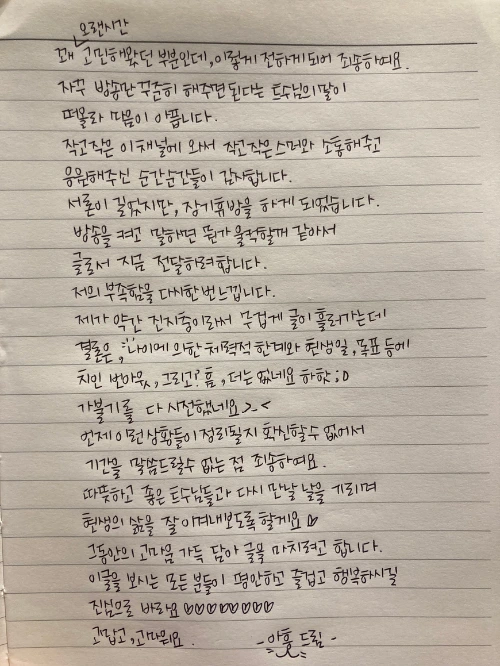 오랜시간
꽤 고민해왔던 부분인데, 이렇게 전하게 되어 죄송하여요.
자꾸 방송만 꾸준히 해주면 된다는 트수님의 말이
떠올라 마음이 아픕니다.
작고 작은 이 채널에 와서 작고 작은 스머와 소통해주고
응원해주신 순간순간들이 감사합니다.
서론이 길었지만, 장기휴방을 하게 되었습니다.
방송을 켜고 말하면 뭔가 울컥할꺼 같아서
글로서 지금 전달하려 합니다.
저의 부족함을 다시한번 느낍니다.
제가 약간 진지충이라서 무겁게 글이 흘러가는데
결론은, 나이에 의한 체력적 한계와 현생일, 목표 등에
치인 번아웃, 그리고? 흠, 더는 없네요 하핫;0
가불기를 다 시전했네요 >_<
언제 이런 상황들이 정리될지 확신할 수 없어서
기간을 말씀드릴수 없는 점 죄송하여요.
따뜻하고 좋은 트수님들과 다시 만날 날을 기리며
현생의 삶을 잘 이겨내보도록 할게요 ♡
그동안의 고마움 가득 담아 글을 마치려고 합니다.
이글을 보시는 모든 분들이 평안하고 즐겁고 행복하시길
진심으로 바라요 ♡♡♡♡♡♡♡♡
고맙고, 고마워요. - 아흥 드림 -